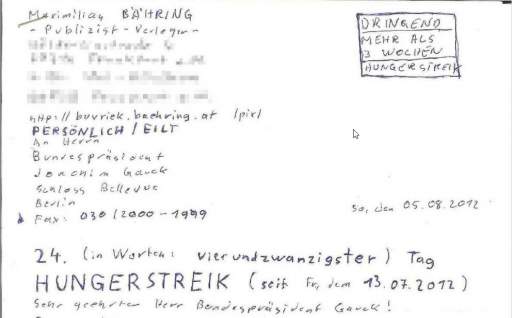 Maximilian BÄHRING
- Publizist - Verleger -
DRINGEND
MEHR ALS
3 WOCHEN
HUNGERSTREIK
http://buvriek.baehring.at /pir/
PERSÖNLICH / EILT
An Herrn
Bundespräsident
Joachim Gauck
Schloss Bellevue
Berlin
Fax: 030 / 2000 - 1999
So, den 05.08.2012
24. (in Worten: vierundzwanzigster) Tag
HUNGERSTREIK (seit Fr, dem 13.07.2012)
Sehr geehrter Herr Bundespräsident Gauck!